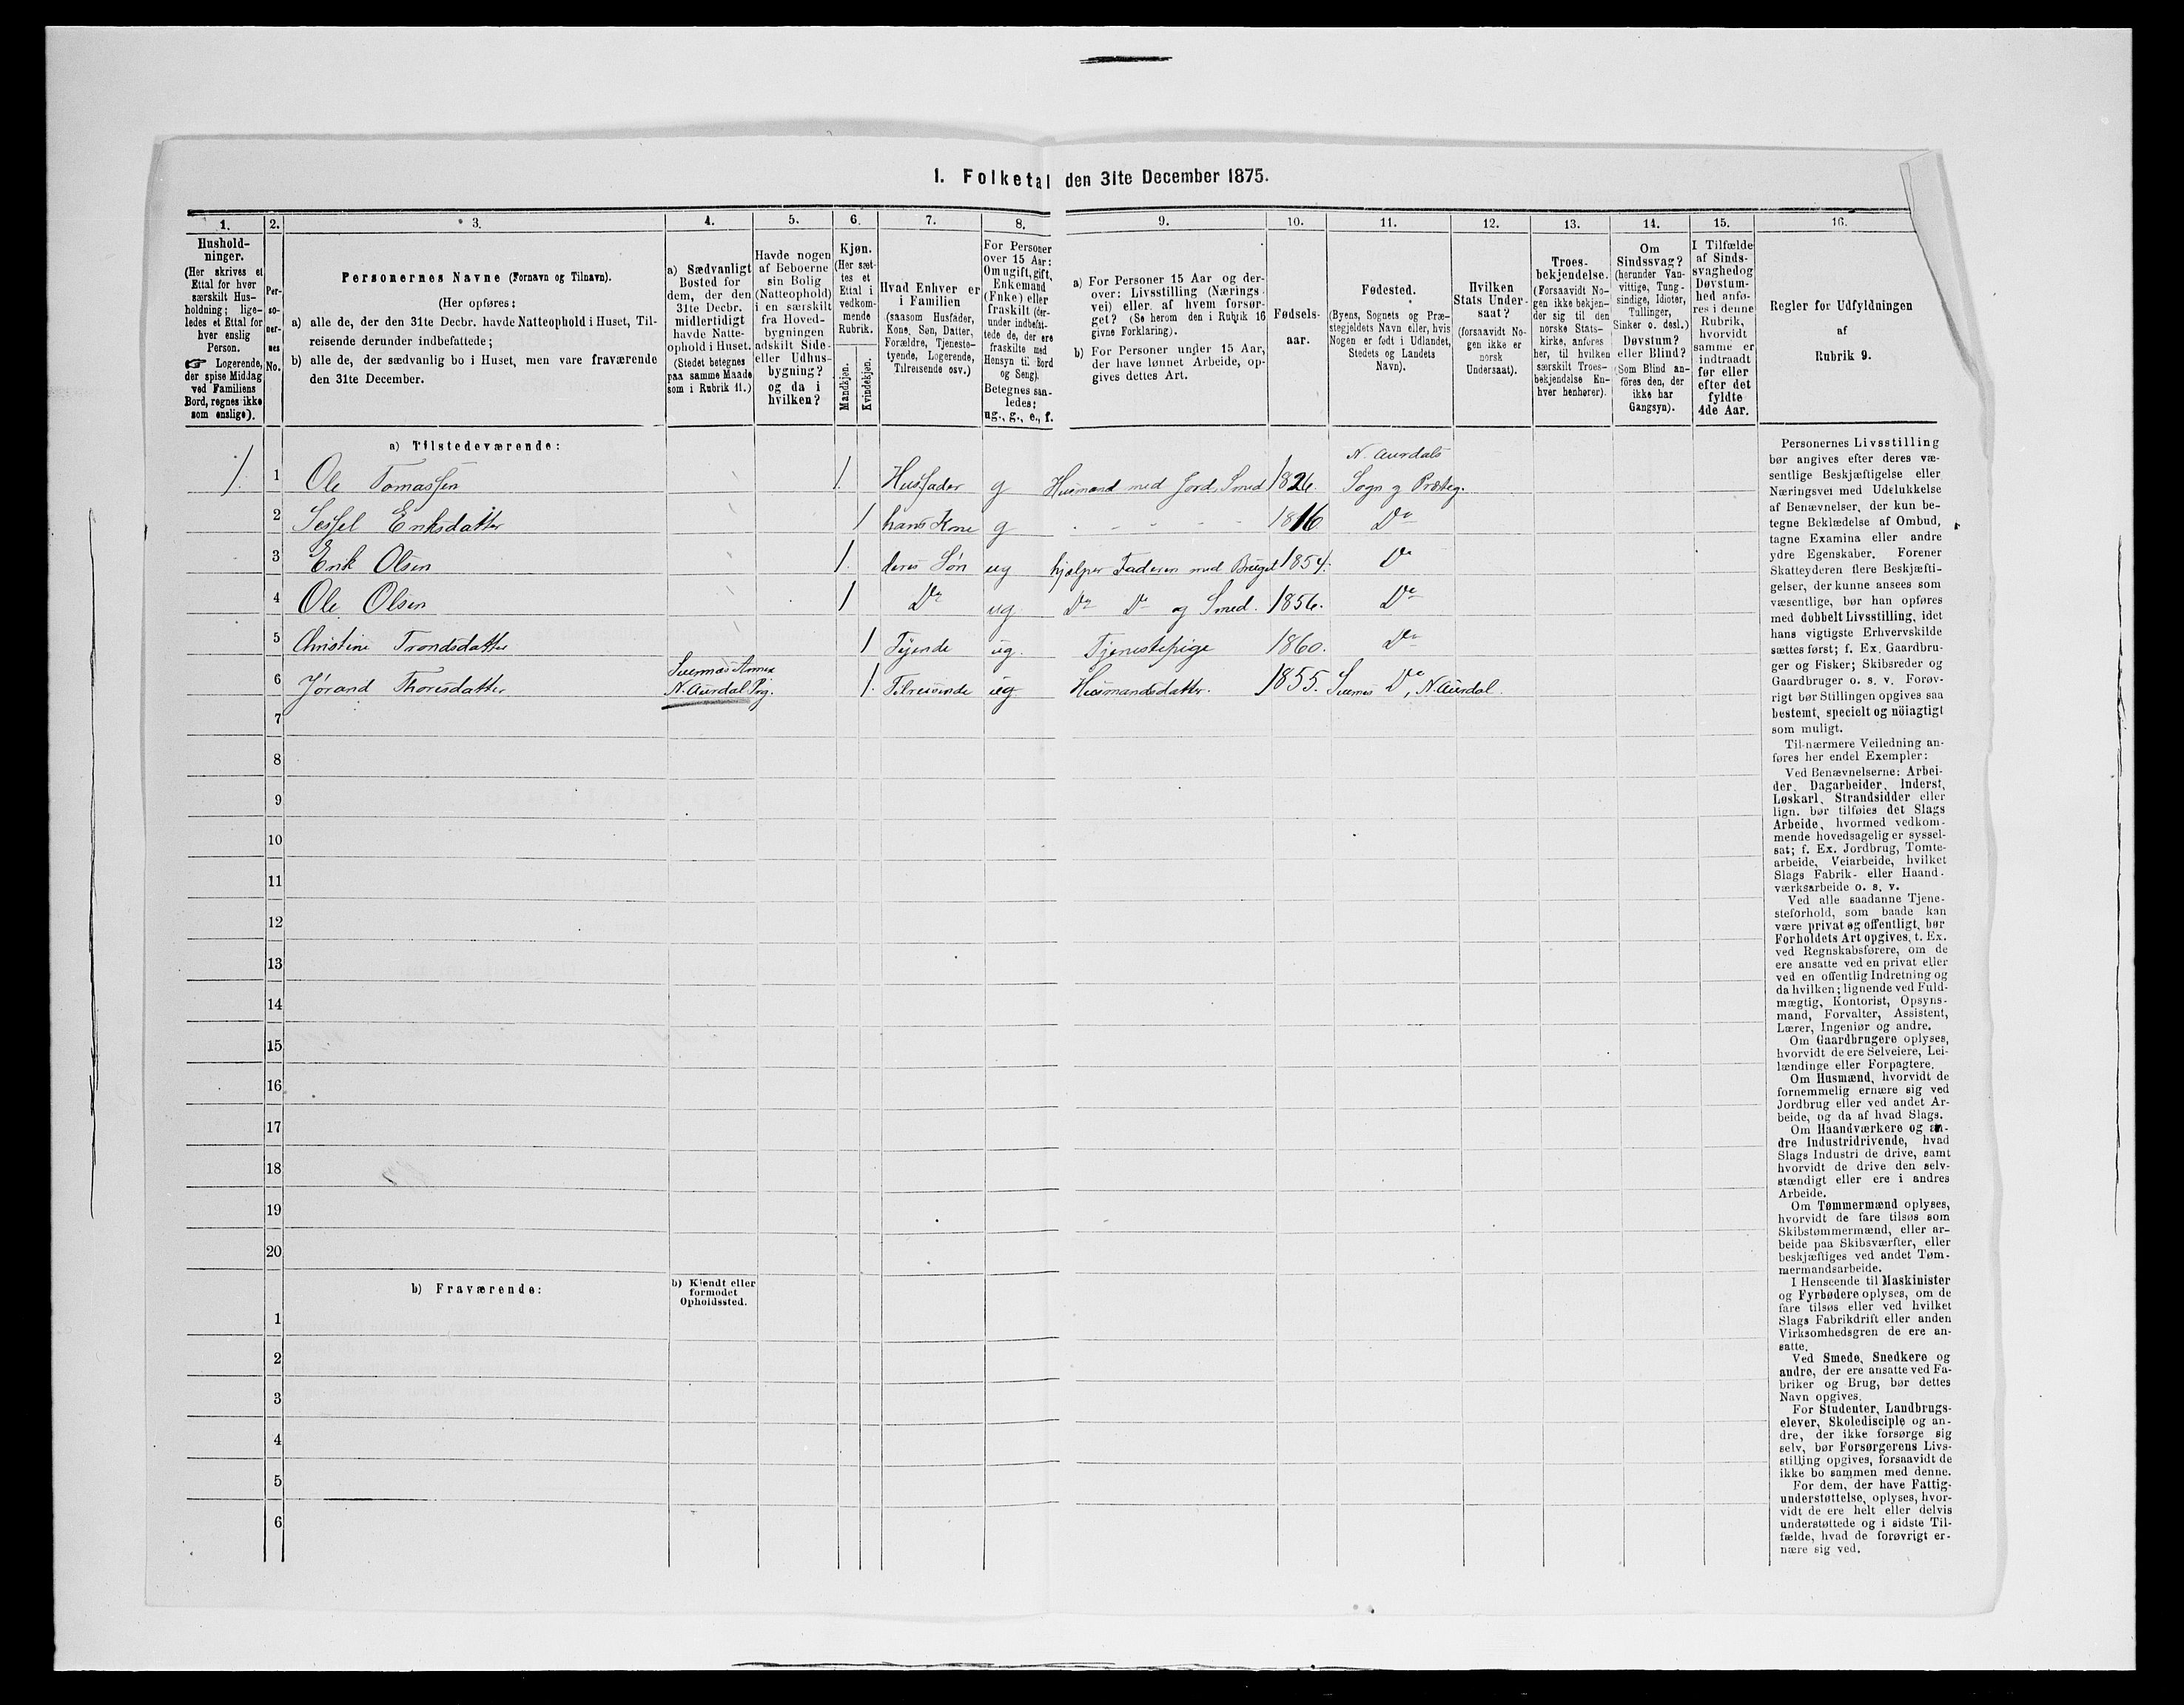 1. Folketal den 31te December 1875.
1.
2.
3.
4.
5.
6.
7.
8.
9.
10.
11.
12.
13.
14.
15.
16.
Hushold-
ninger.
(Her skrives et
Ettal for hver
særskilt Hus-
holdning; lige-
ledes et Ettal for
hver enslig
Person.
☞ Logerende,
der spise Middag
ved Familiens
Bord, regnes ikke
som enslige).
Per-
so-
ner-
nes
No.
Personernes Navne (Fornavn og Tilnavn).
(Her opføres:
a) alle de, der den 31te Decbr. havde Natteophold i Huset, Til-
reisende derunder indbefattede;
b) alle de, der sædvanlig bo i Huset, men vare fraværende
den 31te December.
a) Sædvanligt
Bosted for
dem, der den
31te Decbr.
midlertidigt
havde Natte-
ophold i Huset.
(Stedet betegnes
paa samme Maade
som i Rubrik 11.)
Havde nogen
af Beboerne
sin Bolig
(Natteophold)
i en særskilt
fra Hoved-
bygningen
adskilt Side-
eller Udhus-
bygning?
og da i
hvilken?
Kjøn.
(Her sæt-
tes et
Ettal i
vedkom-
mende
Rubrik.
Mandkjøn.
Kvindekjøn.
Hvad Enhver er
i Familien
(saasom Husfader,
Kone, Søn, Datter,
Forældre, Tjeneste-
tyende, Logerende,
Tilreisende osv.)
For Personer
over 15 Aar:
Om ugift, gift,
Enkemand
(Enke) eller
fraskilt (der-
under indbefat-
tede de, der ere
fraskilte med
Hensyn til Bord
og Seng).
Betegnes saa-
ledes:
ug., g., e., f.
a) For Personer 15 Aar og der-
over: Livsstilling (Nærings-
vei) eller af hvem forsør-
get? (Se herom den i Rubrik 16
givne Forklaring).
b) For Personer under 15 Aar,
der have lønnet Arbeide, op-
gives dettes Art.
Fødsels-
aar.
Fødested.
(Byens, Sognets og Præ-
stegjeldets Navn eller, hvis
Nogen er født i Udlandet,
Stedets og Landets
Navn).
Hvilken
Stats Under-
saat?
(forsaavidt No-
gen ikke er
norsk
Undersaat).
Troes-
bekjendelse.
(Forsaavidt No-
gen ikke bekjen-
der sig til den
norske Stats-
kirke, anføres
her, til hvilken
særskilt Troes-
bekjendelse En-
hver henhører).
Om
Sindssvag?
(herunder Van-
vittige, Tung-
sindige, Idioter,
Tullinger,
Sinker o. desl.)
Døvstum?
eller Blind?
(Som Blind an-
føres den, der
ikke har
Gangsyn).
I Tilfælde
af Sinds-
svaghed og
Døvstum-
hed anfø-
res i denne
Rubrik,
hvorvidt
samme er
indtraadt
før eller
efter det
fyldte
4de Aar.
Regler for Udfyldningen
af
Rubrik 9.
a) Tilstedeværende:
N. Aurdals
1. 1 Ole Tomassen 1. Husfader g Husmand med Jord, Smed 1826. Sogn og Præsteg.
2 Sessel Eriksdatter 1 hans Kone g 1816 Do
3 Erik Olsen 1. deres Søn ug hjælper Faderen med Bruget 1854. Do
4 Ole Olsen 1 Do ug Do Do og Smed. 1856. Do
5 Christine Trondsdatter 1 Tyende ug. Tjenestepige 1860. Do
6 Jørand Thoresdatter N. Aurdal Prg. 1. Tilreisende ug Husmandsdatter. 1855. Do, N. Aurdal.
7
8
9
10
11
12
13
14
15
16
17
18
19
20
b) Fraværende:
b) Kjendt eller
formodet
Opholdssted.
1
2
3
4
5
6
Personernes Livsstilling
bør angives efter deres væ-
sentlige Beskjæftigelse eller
Næringsvei med Udelukkelse
af Benævnelser, der kun be-
tegne Beklædelse af Ombud,
tagne Examina eller andre
ydre Egenskaber. Forener
Skatteyderen flere Beskjæfti-
gelser, der kunne ansees som
væsentlige, bør han opføres
med dobbelt Livsstilling, idet
hans vigtigste Erhvervskilde
sættes først; f. Ex. Gaardbru-
ger og Fisker; Skibsreder og
Gaardbruger o. s. v. Forøv-
rigt bør Stillingen opgives saa
bestemt, specielt og nöiagtigt
som muligt.
Til nærmere Veiledning an-
føres her endel Exempler:
Ved Benævnelserne: Arbei-
der, Dagarbeider, Inderst,
Løskarl, Strandsidder eller
lign. bør tilføies det Slags
Arbeide, hvormed vedkom-
mende hovedsagelig er syssel-
sat; f. Ex. Jordbrug, Tomte-
arbeide, Veiarbeide, hvilket
Slags Fabrik- eller Haand-
værksarbeide o. s. v.
Ved alle saadanne Tjene-
steforhold, som baade kan
være privat og offentligt, bør
Forholdets Art opgives, t. Ex.
ved Regnskabsførere, om de
ere ansatte ved en privat eller
ved en offentlig Indretning og
da hvilken; lignende ved Fuld-
mægtig, Kontorist, Opsyns-
mand, Forvalter, Assistent,
Lærer, Ingeniør og andre.
Om Gaardbrugere oplyses,
hvorvidt de ere Selveiere, Lei-
lændinge eller Forpagtere.
Om Husmænd, hvorvidt de
fornemmelig ernære sig ved
Jordbrug eller ved andet Ar-
beide, og da af hvad Slags.
Om Haandværkere og an-
dre Industridrivende, hvad
Slags Industri de drive, samt
hvorvidt de drive den selv-
stændigt eller ere i andres
Arbeide.
Om Tømmermænd oplyses,
hvorvidt de fare tilsøs som
Skibstømmermænd, eller ar-
beide paa Skibsværfter, eller
beskjæftiges ved andet Tøm-
mermandsarbeide.
I Henseende til Maskinister
og Fyrbødere oplyses, om de
fare tilsøs eller ved hvilket
Slags Fabrikdrift eller anden
Virksomhedsgren de ere an-
satte.
Ved Smede, Snedkere og
andre, der ere ansatte ved Fa-
briker og Brug, bør dettes
Navn opgives.
For Studenter, Landbrugs-
elever, Skoledisciple og an-
dre, der ikke forsørge sig
selv, bør Forsørgerens Livs-
stilling opgives, forsaavidt de
ikke bo sammen med denne.
For dem, der have Fattig-
understøttelse, oplyses, hvor-
vidt de ere helt eller delvis
understøttede og i sidste Til-
fælde, hvad de forøvrigt er-
nære sig ved.